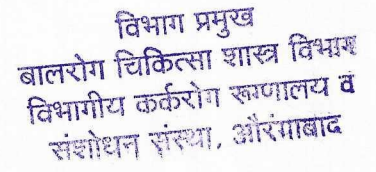 विभाग प्रमुख
बालरोग चिकित्सा शास्त्र विभाग
विभागीय कर्करोग रुग्णालय व
संशोधन संस्था, औरंगाबाद